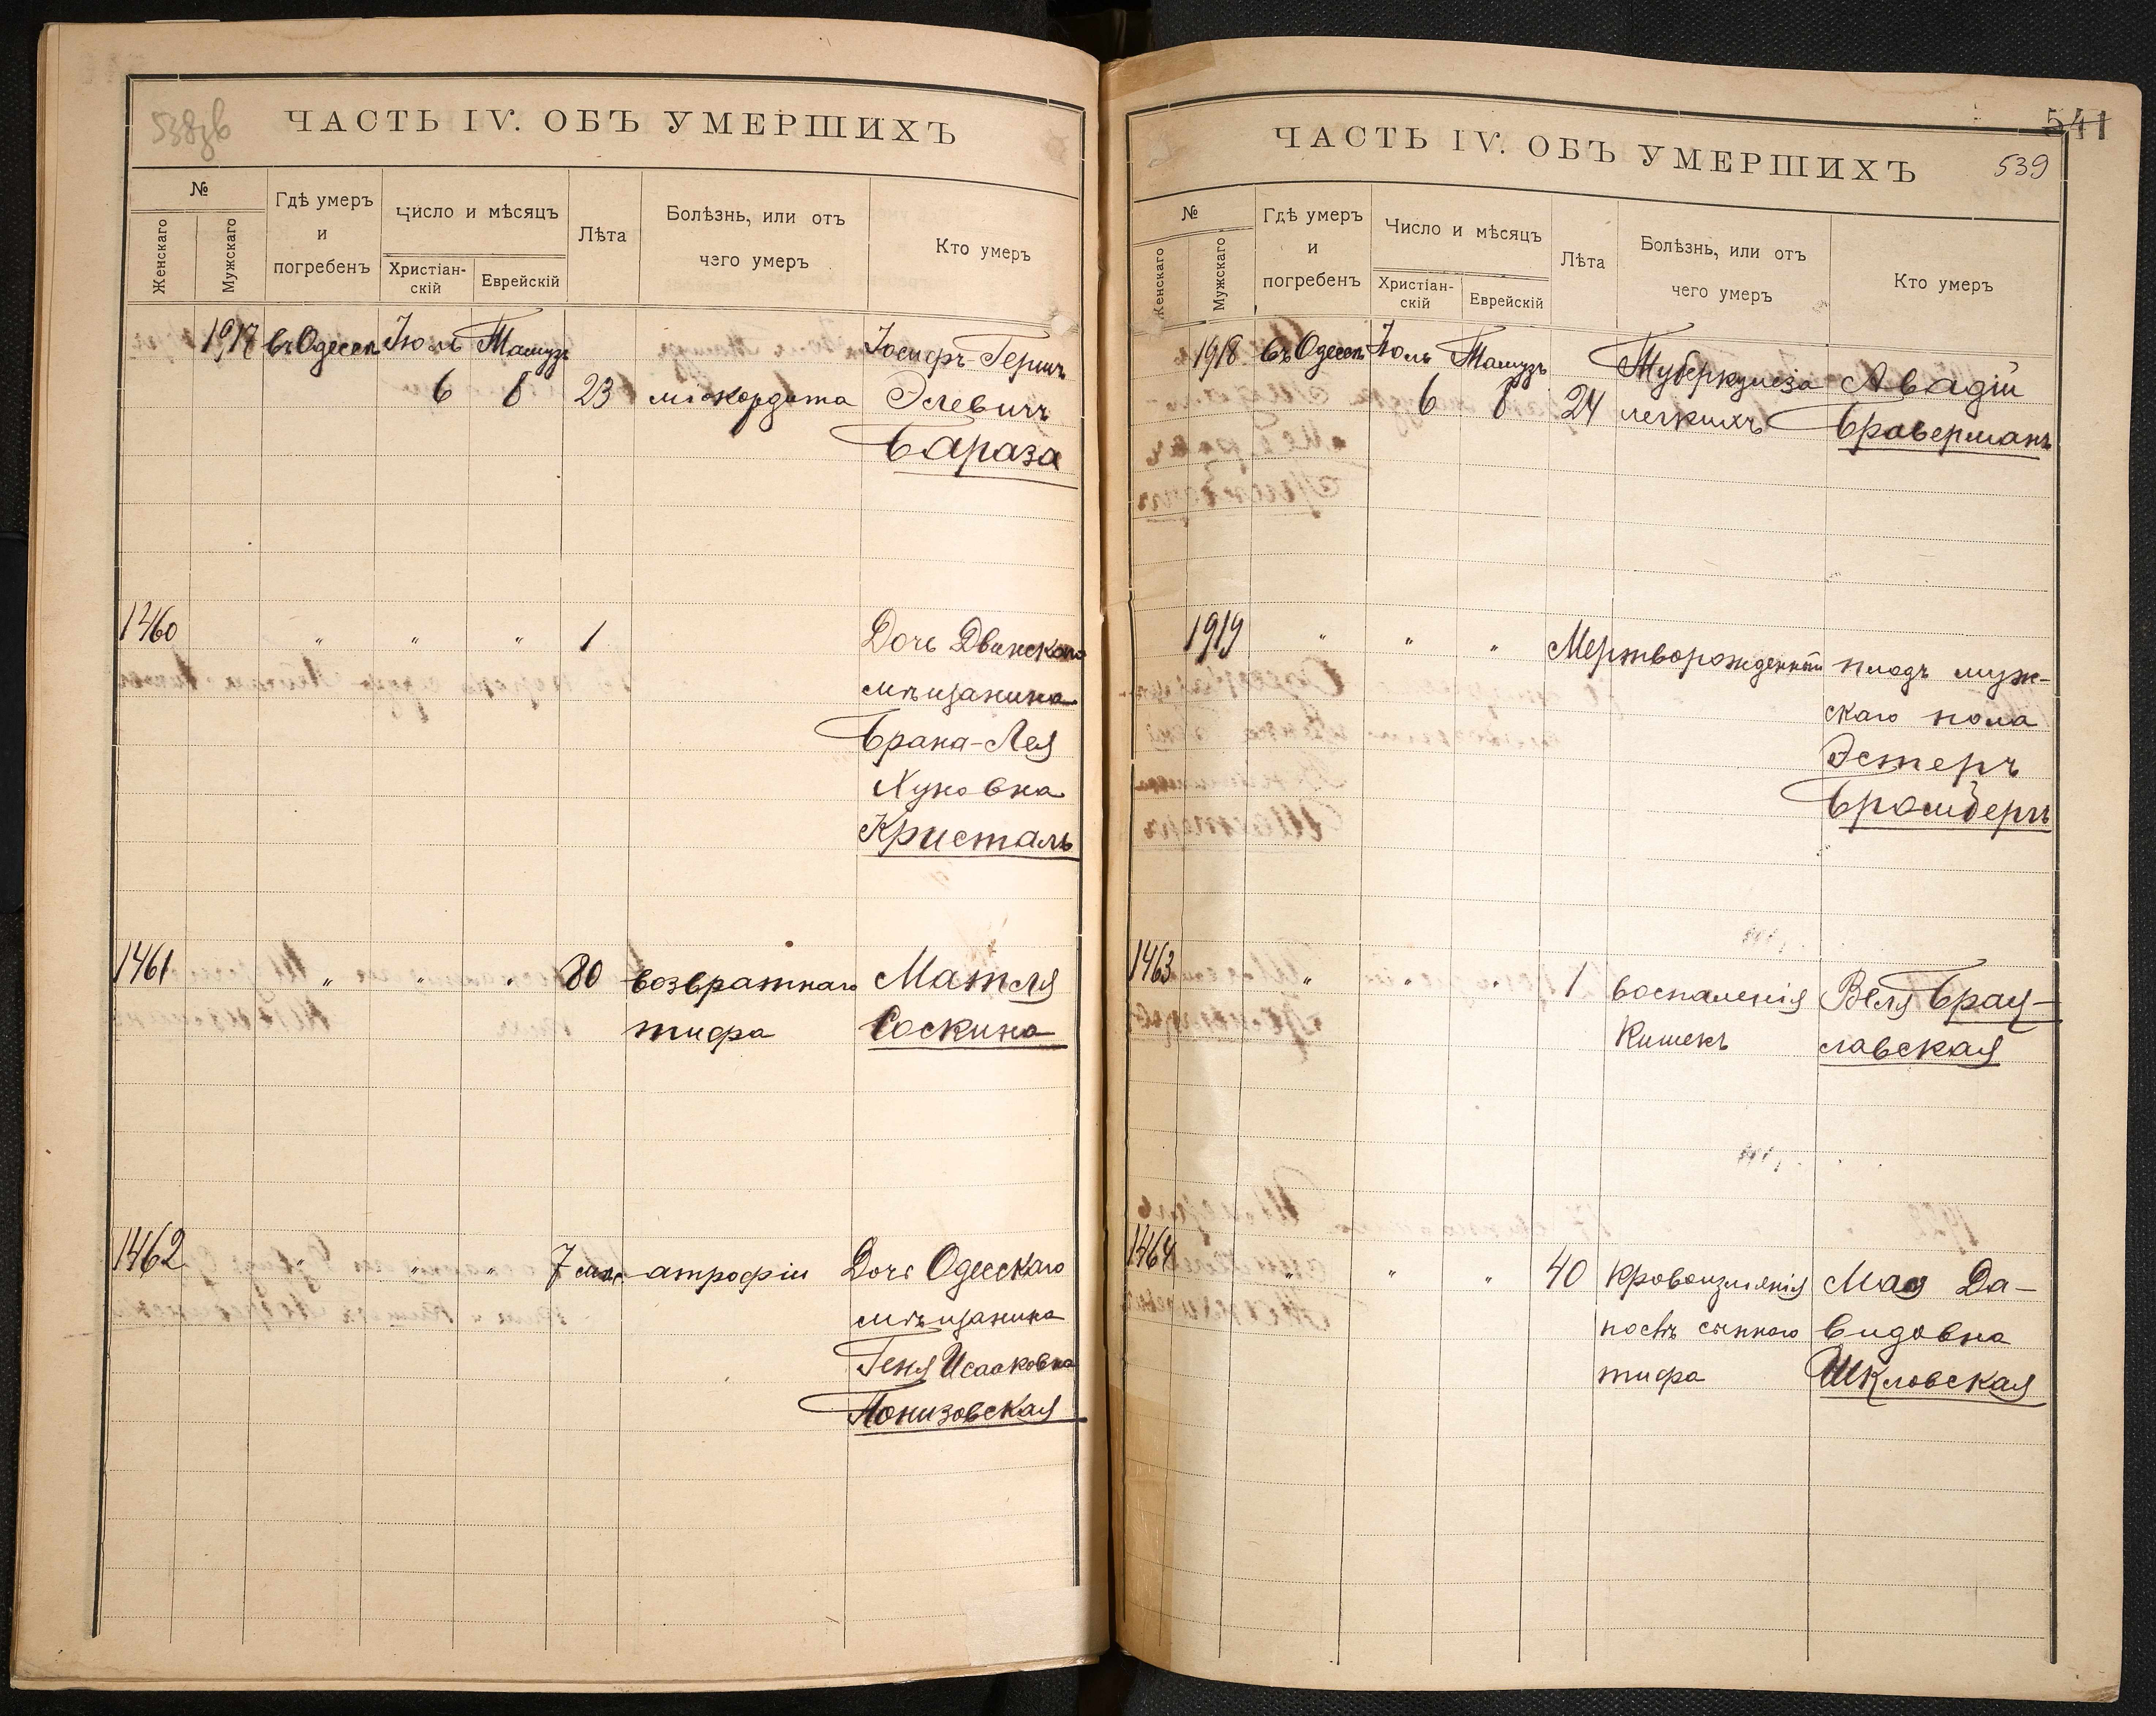 538зв
ЧАСТЬ IV. ОБЪ УМЕРШИХЪ
№
Женскаго
Мужскаго
Гдѣ умеръ
и
погребенъ
Число и мѣсяцъ
Христіан-
скій
Еврейскій
Лѣта
Болѣзнь, или отъ
чего умеръ
Кто умеръ
1917 въ Одессѣ Іюль Тамузъ Іосифъ-Гершъ
6 8 23 міокардита Элевичъ
Бараза
1460 " " " 1 Дочь Двинскаго
мѣщанина
Брана-Лея
Хуновна
Кристаль
1461 " " " 80 возвратнаго Матля
тифа Соскина
1462 " " " 7 мѣс. атрофіи Дочь Одесскаго
мѣщанина
Геня Исааковна
Понизовская
541
ЧАСТЬ IV. ОБЪ УМЕРШИХЪ
539
№
Женскаго
Мужскаго
Гдѣ умеръ
и
погребенъ
Число и мѣсяцъ
Христіан-
скій
Еврейскій
Лѣта
Болѣзнь, или отъ
чего умеръ
Кто умеръ
1918 въ Одессѣ Іюль Тамузъ Туберкулеза Авадій
6 8 24 легкихъ Браверманъ
1919 " " " Мертворожденный плодъ муж-
скаго пола
Эстеръ
1463 " " " 1 воспаленія Веля Брац-
Кишекъ славская
1464 " " " 40 Кровоизліянія Мая Да-
послѣ сыпного видовна
тифа Шкловская